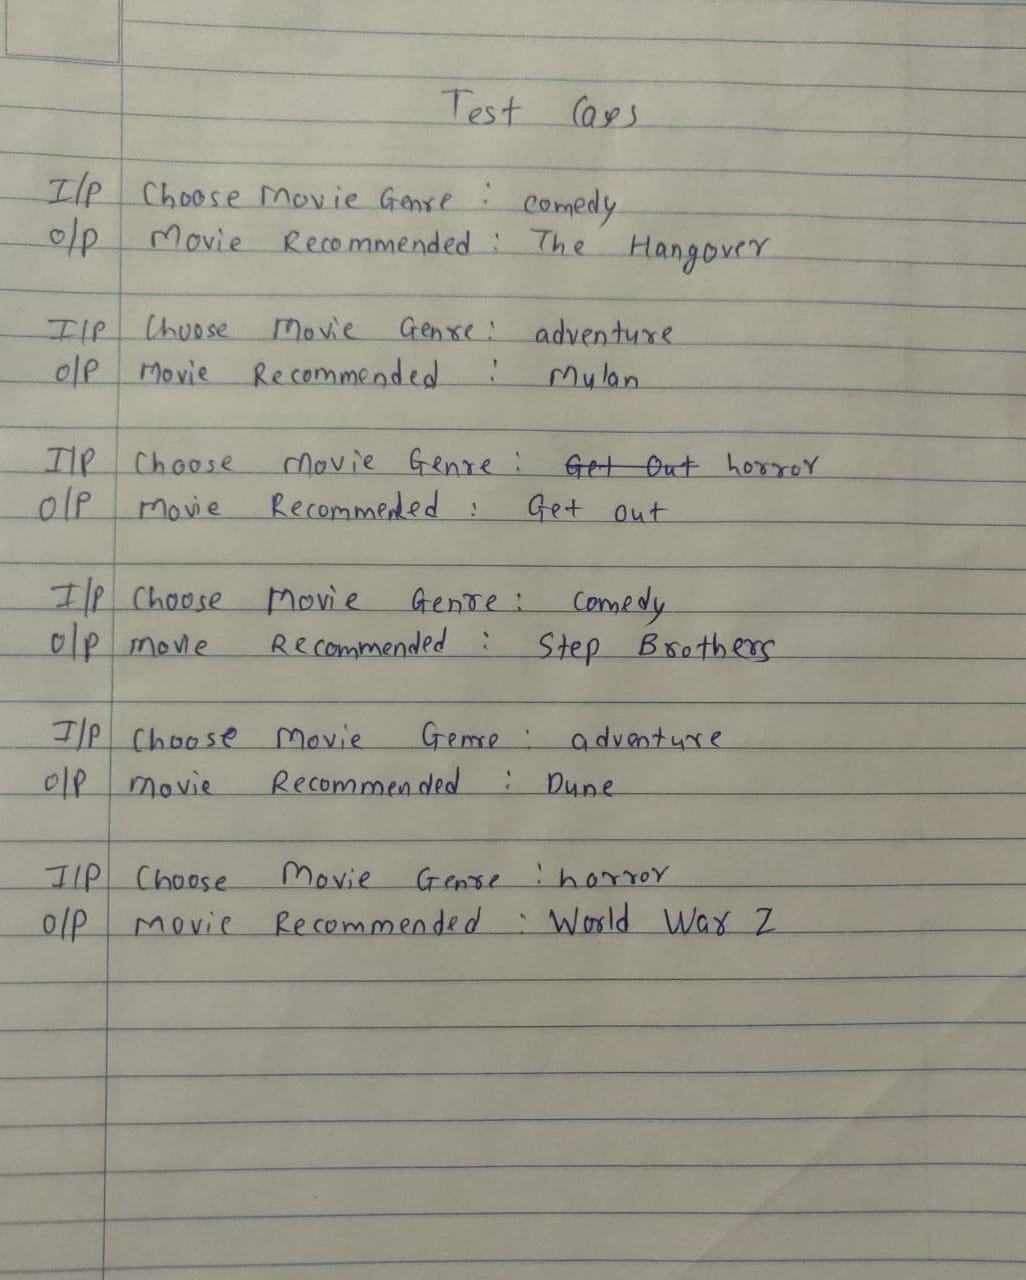 Test Cases
I/P Choose Movie Genre : comedy
O/P Movie Recommended : The Hangover
I/P Choose Movie Genre : adventure
O/P Movie Recommended : Mulan
I/P Choose Movie Genre : Get Out horror
O/P Movie Recommended : Get out
I/P Choose Movie Genre : comedy
O/P Movie Recommended : Step Brothers
I/P Choose Movie Genre : adventure
O/P Movie Recommended : Dune
I/P Choose Movie Genre : horror
O/P Movie Recommended : World War Z